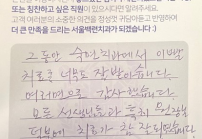 또는 칭찬하고 싶은 직원이 있으시다면 알려주세요.
고객 여러분의 소중한 의견을 정성껏 귀담아듣고 반영하여
더 큰 만족을 드리는 서울백련치과가 되겠습니다 :)
그동안 숙련치과에서 이번
치료 너무도 잘 받았습니다.
여러가지로 감사했습니다.
모든 선생님들과 특히
덕분에 치료가 참 잘되었습니다